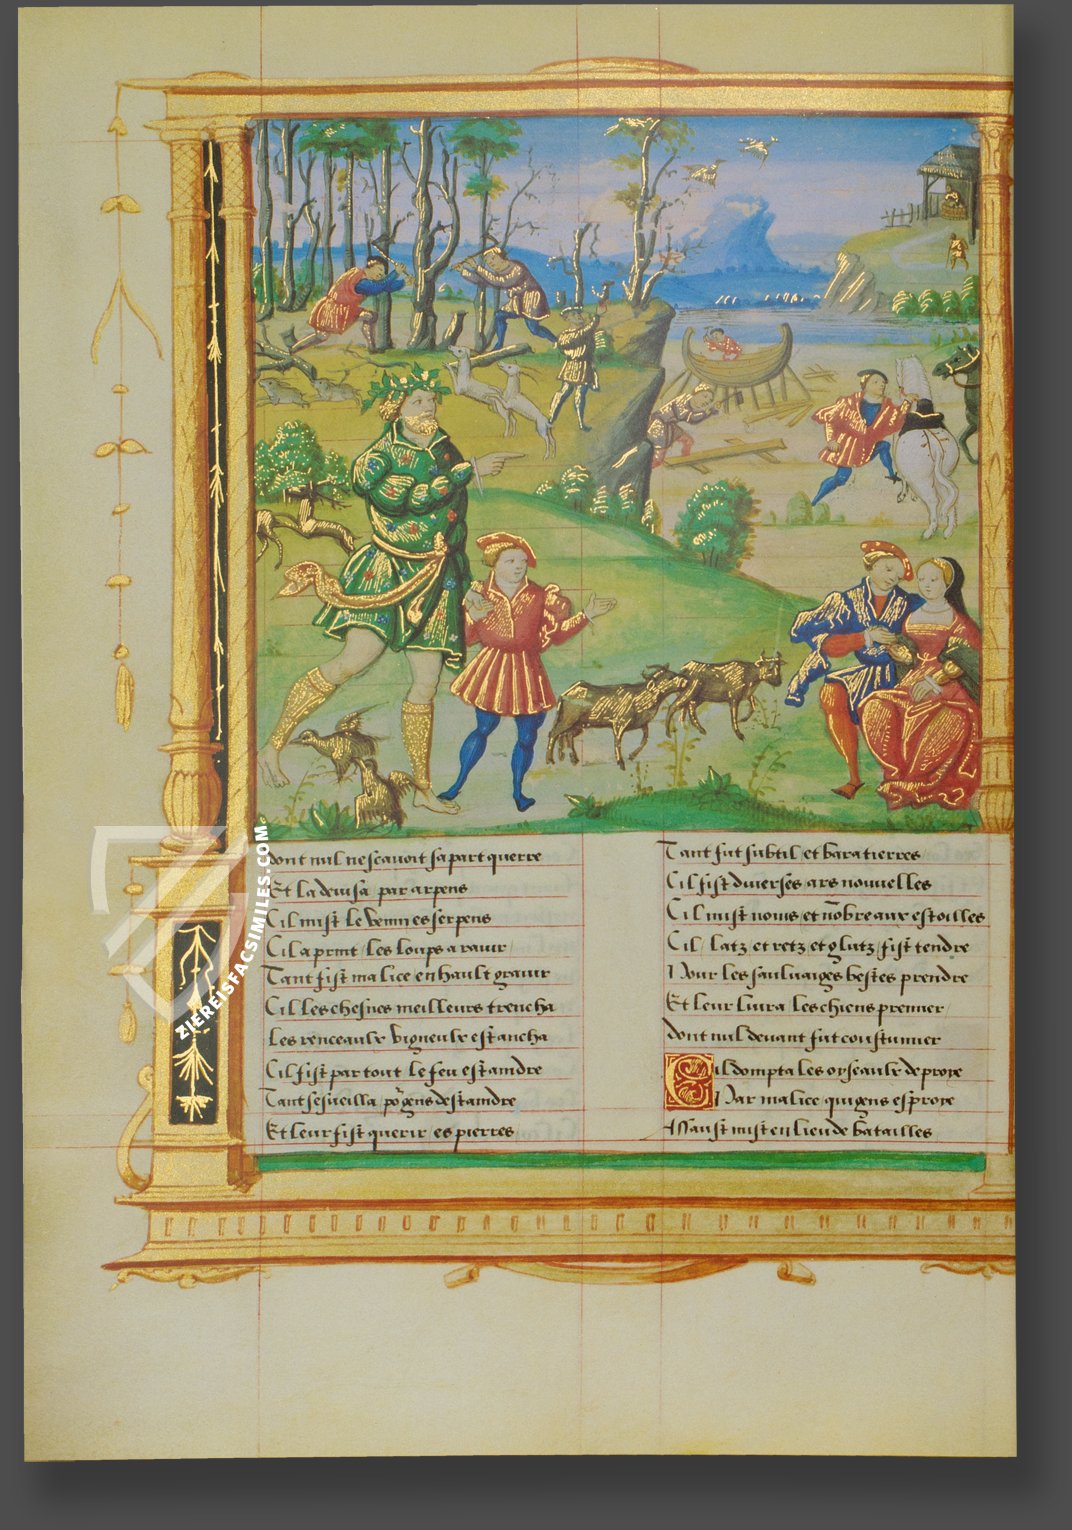 dont nul ne scauoit sa part querre
Et la deuisa par arpens
Cil mist le venin es serpens
Cil a prnt / les loups a rauir /
Tant fist malice en hault grauir
Cil les chesnes meilleurs trencha
Les renceaulx vigneulx estancha
Cil fist par tout le feu estaindre
Tant sesueilla po gens destaindre
Et leur fist querir / es pierres
Tant fut subtil / et baratierres
Cil fist diuerses ars nouuelles
Cil mist noms / et nõbre aux estoilles
Cil / latz / et retz / et glutz / fist tendre
Pour les sauluaiges bestes prendre
Et leur liura / les chiens premier /
Dont nul deuant fut coustumier
Cil dompta les oyseaulx de proye
Par malice / qui gens esproye
Mist en lieu de batailles
ZIEREISFACSIMILES.COM